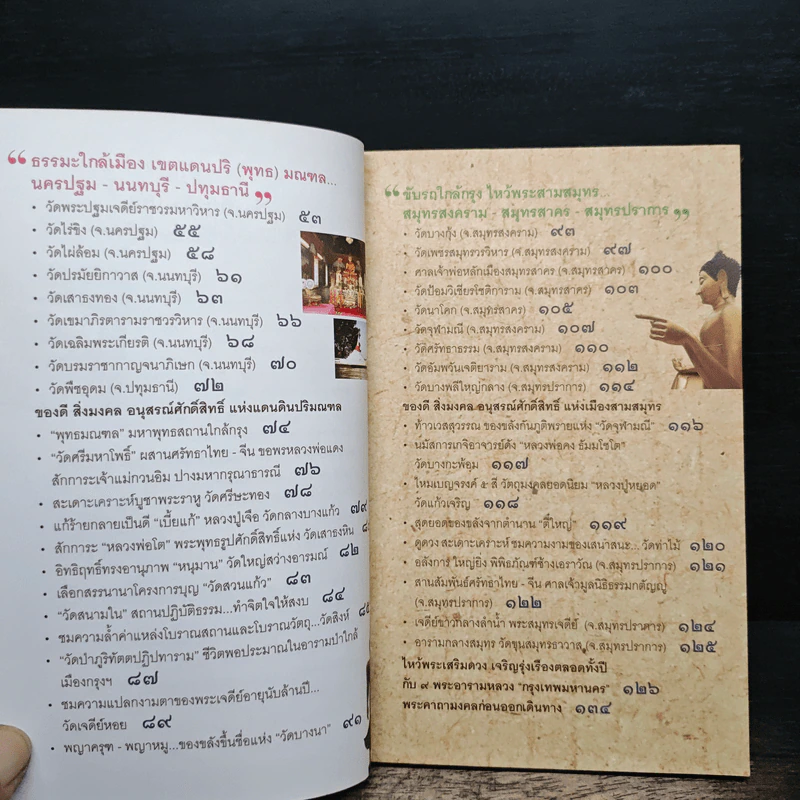 “ ธรรมะใกล้เมือง เขตแดนปริ (พุทธ) มณฑล...
นครปฐม - นนทบุรี - ปทุมธานี ”
• วัดพระปฐมเจดีย์ราชวรมหาวิหาร (จ.นครปฐม) ๕๓
• วัดไร่ขิง (จ.นครปฐม) ๕๕
• วัดไผ่ล้อม (จ.นครปฐม) ๕๘
• วัดปรมัยยิกาวาส (จ.นนทบุรี) ๖๑
• วัดเสาธงทอง (จ.นนทบุรี) ๖๓
• วัดเขมาภิรตารามราชวรวิหาร (จ.นนทบุรี) ๖๖
• วัดเฉลิมพระเกียรติ (จ.นนทบุรี) ๖๘
• วัดบรมราชากาญจนาภิเษก (จ.นนทบุรี) ๗๐
• วัดพืชอุดม (จ.ปทุมธานี) ๗๒
ของดี สิ่งมงคล อนุสรณ์ศักดิ์สิทธิ์ แห่งแดนดินปริมณฑล
• “พุทธมณฑล” มหาพุทธสถานใกล้กรุง ๗๔
• “วัดศรีมหาโพธิ์” ผสานศรัทธาไทย - จีน ขอพรหลวงพ่อแดง
สักการะเจ้าแม่กวนอิม ปางมหากรุณาธารณี ๗๖
• สะเดาะเคราะห์บูชาพระราหู วัดศรีษะทอง ๗๘
• แก้ร้ายกลายเป็นดี “เบี้ยแก้” หลวงปู่เจือ วัดกลางบางแก้ว ๗๙
• สักการะ “หลวงพ่อโต” พระพุทธรูปศักดิ์สิทธิ์แห่ง วัดเสาธงหิน
• อิทธิฤทธิ์ทรงอานุภาพ “หนุมาน” วัดใหญ่สว่างอารมณ์ ๘๒
• เลือกสรรนานาโครงการบุญ “วัดสวนแก้ว” ๘๓
• “วัดสนามใน” สถานปฏิบัติธรรม...ทำจิตใจให้สงบ ๘๔
• ชมความล้ำค่าแหล่งโบราณสถานและโบราณวัตถุ...วัดสิงห์ ๘๕
• “วัดป่าภูริทัตตปฏิปทาราม” ชีวิตพอประมาณในอารามป่าใกล้
เมืองกรุงฯ ๘๗
• ชมความแปลกงามตาของพระเจดีย์อายุนับล้านปี...
วัดเจดีย์หอย ๘๙
• พญาครุฑ - พญาหมู...ของขลังขึ้นชื่อแห่ง “วัดบางนา” ๙๑
“ ขับรถใกล้กรุง ไหว้พระสามสมุทร...
สมุทรสงคราม - สมุทรสาคร - สมุทรปราการ ”
• วัดบางกุ้ง (จ.สมุทรสงคราม) ๙๓
• วัดเพชรสมุทรวรวิหาร (จ.สมุทรสงคราม) ๙๗
• ศาลเจ้าพ่อหลักเมืองสมุทรสาคร (จ.สมุทรสาคร) ๑๐๐
• วัดป้อมวิเชียรโชติการาม (จ.สมุทรสาคร) ๑๐๓
• วัดนาโคก (จ.สมุทรสาคร) ๑๐๕
• วัดจุฬามณี (จ.สมุทรสงคราม) ๑๐๗
• วัดศรัทธาธรรม (จ.สมุทรสงคราม) ๑๑๐
• วัดอัมพวันเจติยาราม (จ.สมุทรสงคราม) ๑๑๒
• วัดบางพลีใหญ่กลาง (จ.สมุทรปราการ) ๑๑๔
ของดี สิ่งมงคล อนุสรณ์ศักดิ์สิทธิ์ แห่งเมืองสามสมุทร
• ท้าวเวสสุวรรณ ของขลังกันภูติพรายแห่ง “วัดจุฬามณี” ๑๑๖
• นมัสการเกจิอาจารย์ดัง “หลวงพ่อคง ธัมมโชโต”
วัดบางกะพ้อม ๑๑๗
• ไหมเบญจรงค์ ๕ สี วัตถุมงคลยอดนิยม “หลวงปู่หยอด”
วัดแก้วเจริญ ๑๑๘
• สุดยอดของขลังจากตำนาน “ตี๋ใหญ่” ๑๑๙
• ดูดวง สะเดาะเคราะห์ ชมความงามของเสนาสนะ... วัดท่าไม้ ๑๒๐
• อลังการ ใหญ่ยิ่ง พิพิธภัณฑ์ช้างเอราวัณ (จ.สมุทรปราการ) ๑๒๑
• สานสัมพันธ์ศรัทธาไทย - จีน ศาลเจ้ามูลนิธิธรรมกตัญญู
(จ.สมุทรปราการ) ๑๒๒
• เจดีย์ขาวกลางลำน้ำ พระสมุทรเจดีย์ (จ.สมุทรปราการ) ๑๒๔
• อารามกลางสมุทร วัดขุนสมุทรธาวาส (จ.สมุทรปราการ) ๑๒๕
ไหว้พระเสริมดวง เจริญรุ่งเรืองตลอดทั้งปี
กับ ๙ พระอารามหลวง “กรุงเทพมหานคร” ๑๒๖
พระคาถามงคลก่อนออกเดินทาง ๑๓๔